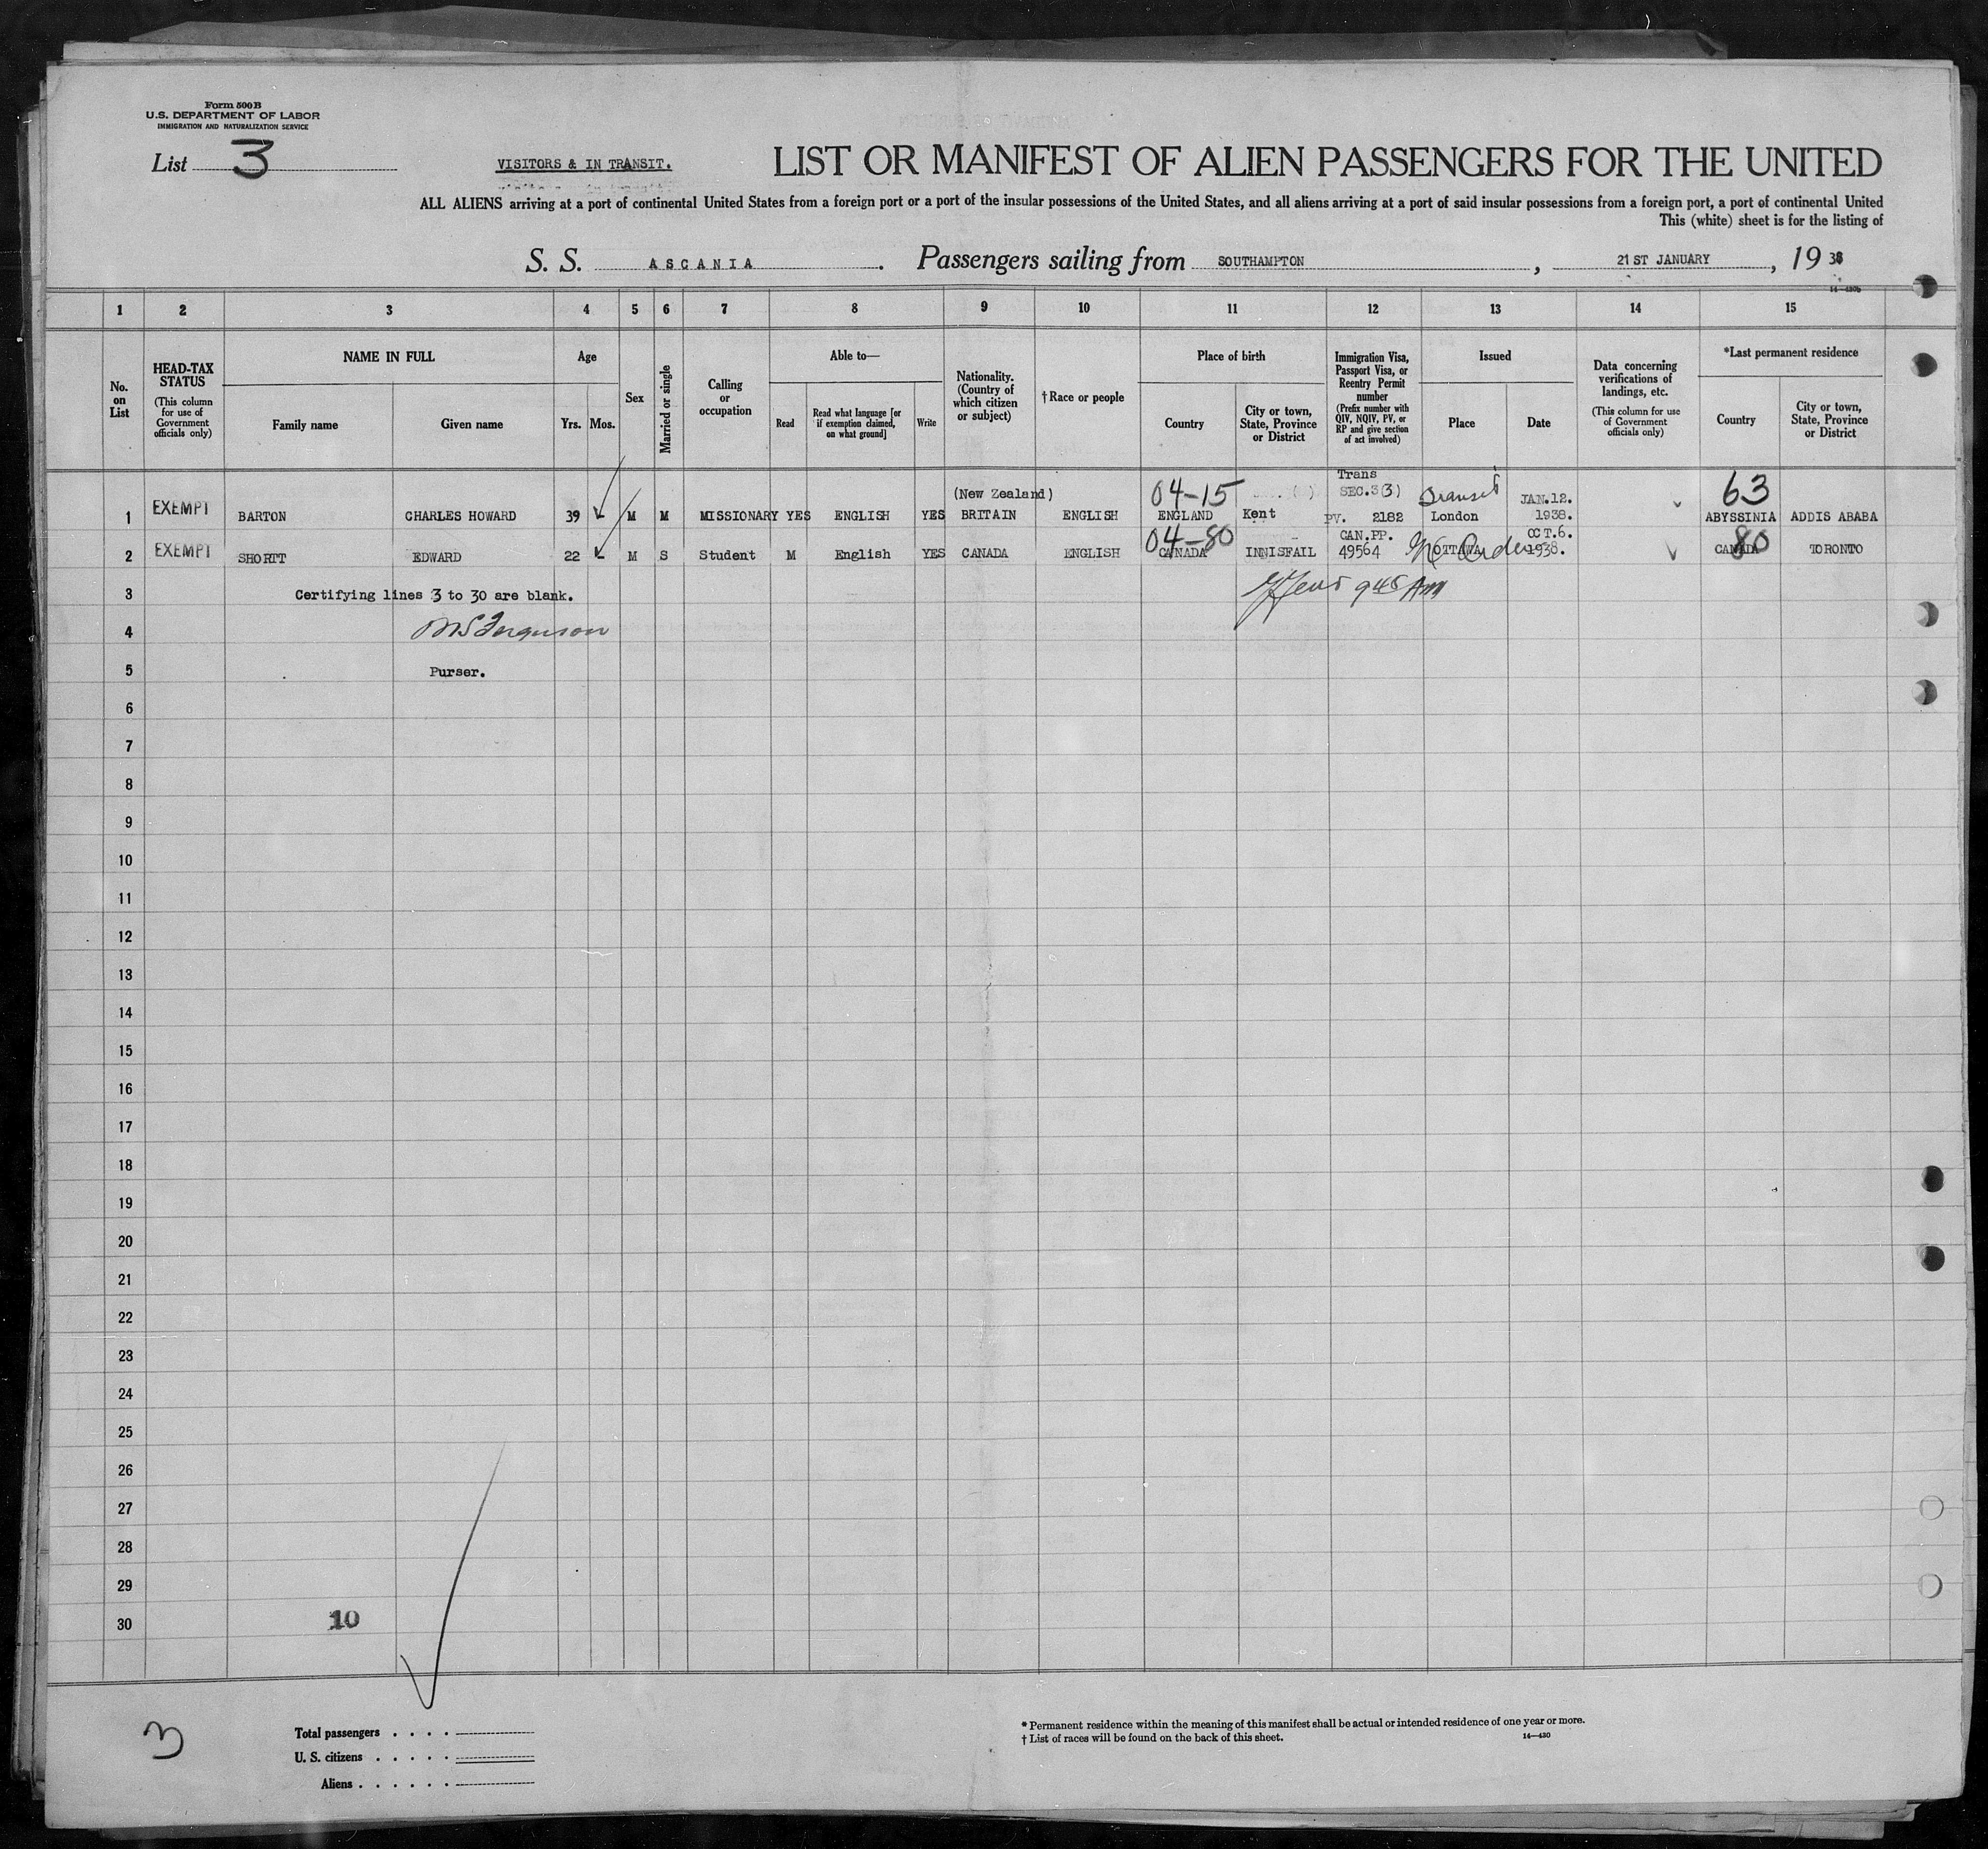 Form 500 B
U.S. DEPARTMENT OF LABOR
IMMIGRATION AND NATURALIZATION SERVICE
List 3
VISITORS & IN TRANSIT.
LIST OR MANIFEST OF ALIEN PASSENGERS FOR THE UNITED
ALL ALIENS arriving at a port of continental United States from a foreign port or a port of the insular possessions of the United States, and all aliens arriving at a port of said insular possessions from a foreign port, a port of continental United
This (white) sheet is for the listing of
S. S. ASCANIA. Passengers sailing from SOUTHAMPTON, 21ST JANUARY, 1938
14—430b
1 2 3 4 5 6 7 8 9 10 11 12 13 14 15
No. on List
HEAD-TAX STATUS
(This column for use of Government officials only)
NAME IN FULL
Family name
Given name
Age
Yrs. Mos.
Sex
Married or single
Calling or occupation
Able to—
Read
Read what language [or if exemption claimed, on what ground]
Write
Nationality. (Country of which citizen or subject)
† Race or people
Place of birth
Country
City or town, State, Province or District
Immigration Visa, Passport Visa, or Reentry Permit number
(Prefix number with QIV, NQIV, PV, or RP and give section of act involved)
Issued
Place
Date
Data concerning verifications of landings, etc.
(This column for use of Government officials only)
*Last permanent residence
Country
City or town, State, Province or District
Trans
(New Zealand) 04-15 SEC.3(3) Transit JAN.12. 63
1 EXEMPT BARTON CHARLES HOWARD 39 M M MISSIONARY YES ENGLISH YES BRITAIN ENGLISH ENGLAND Kent PV. 2182 London 1938. ABYSSINIA ADDIS ABABA
04-80 CAN.PP. OCT.6. 80
2 EXEMPT SHORTT EDWARD 22 M S Student M English YES CANADA ENGLISH CANADA INNISFAIL 49564 OTTAWA 1938. CANADA TORONTO
3 Certifying lines 3 to 30 are blank. 945 Am
4 Ferguson
5 Purser.
6
7
8
9
10
11
12
13
14
15
16
17
18
19
20
21
22
23
24
25
26
27
28
29
30 10
3
Total passengers
U. S. citizens
Aliens
* Permanent residence within the meaning of this manifest shall be actual or intended residence of one year or more.
† List of races will be found on the back of this sheet. 14—430